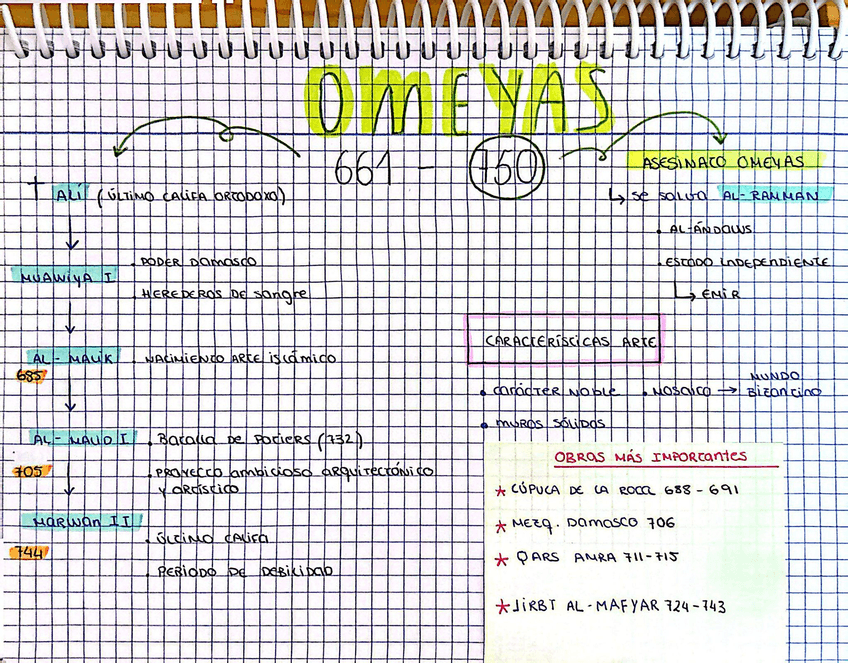 OMEYAS
661 - 750
† ALÍ (ÚLTIMO CALIFA ORTODOXO)
MUAWIYA I
. PODER DAMASCO
. HEREDEROS DE sangre
AL-MALIK . NACIMIENTO ARTE ISLÁMICO
685
AL-WALID I . BATALLA DE POTIERS (732)
705 . PROYECTO ambicioso ARQUITECTÓNICO
Y ARTÍSTICO
MARWAN II
744 . ÚLTIMO CALIFA
. PERIODO DE DEBILIDAD
ASESINATO OMEYAS
↳ se salva AL-RAHMAN
. AL-ÁNDALUS
. ESTADO INDEPENDIENTE
↳ EMIR
CARACTERÍSTICAS ARTE
• CARÁCTER NOBLE . MOSAICO → MUNDO
BIZANTINO
• MUROS SÓLIDOS
OBRAS MÁS IMPORTANTES
* CÚPULA DE LA ROCA 688 - 691
* MEZQ. DAMASCO 706
* QARS AMRA 711-715
* JIRBT AL-MAFYAR 724-743